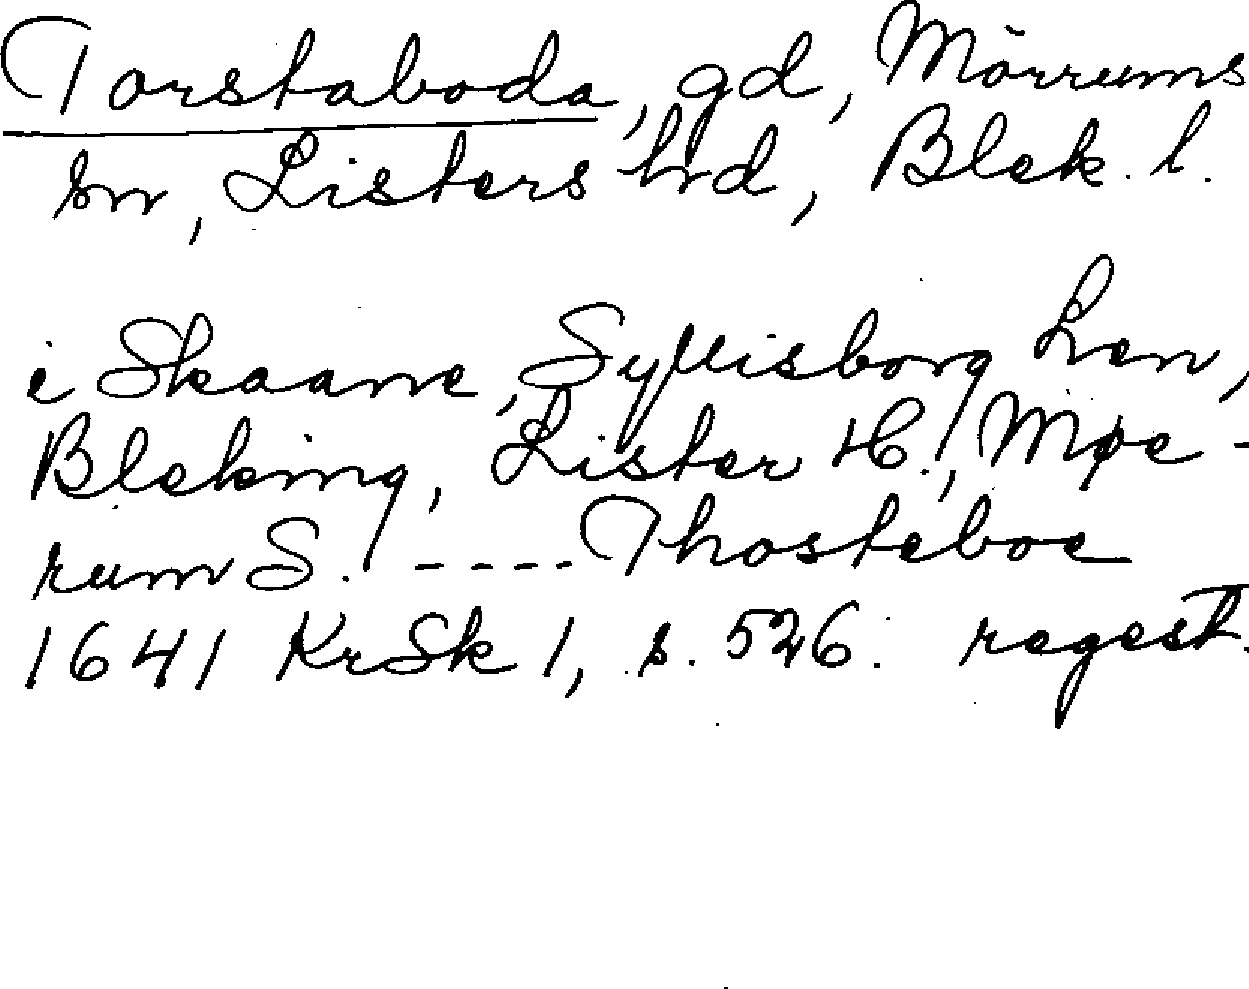 Torstaboda, gd, Mörrums
sn, Listers hrd, Blek. l.
i Skaane, Syllisborg Len,
Bleking, Lister H., Møe-
rum S. ---- Thosteboe
1641 KrSk 1, s. 526. regest.